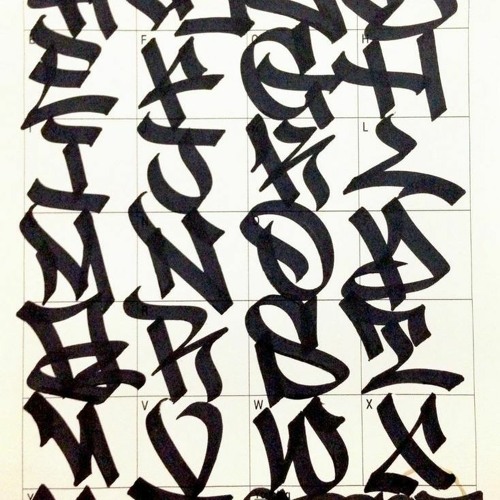 E F G H
I J K L
M N O P
Q R S T
U V W X